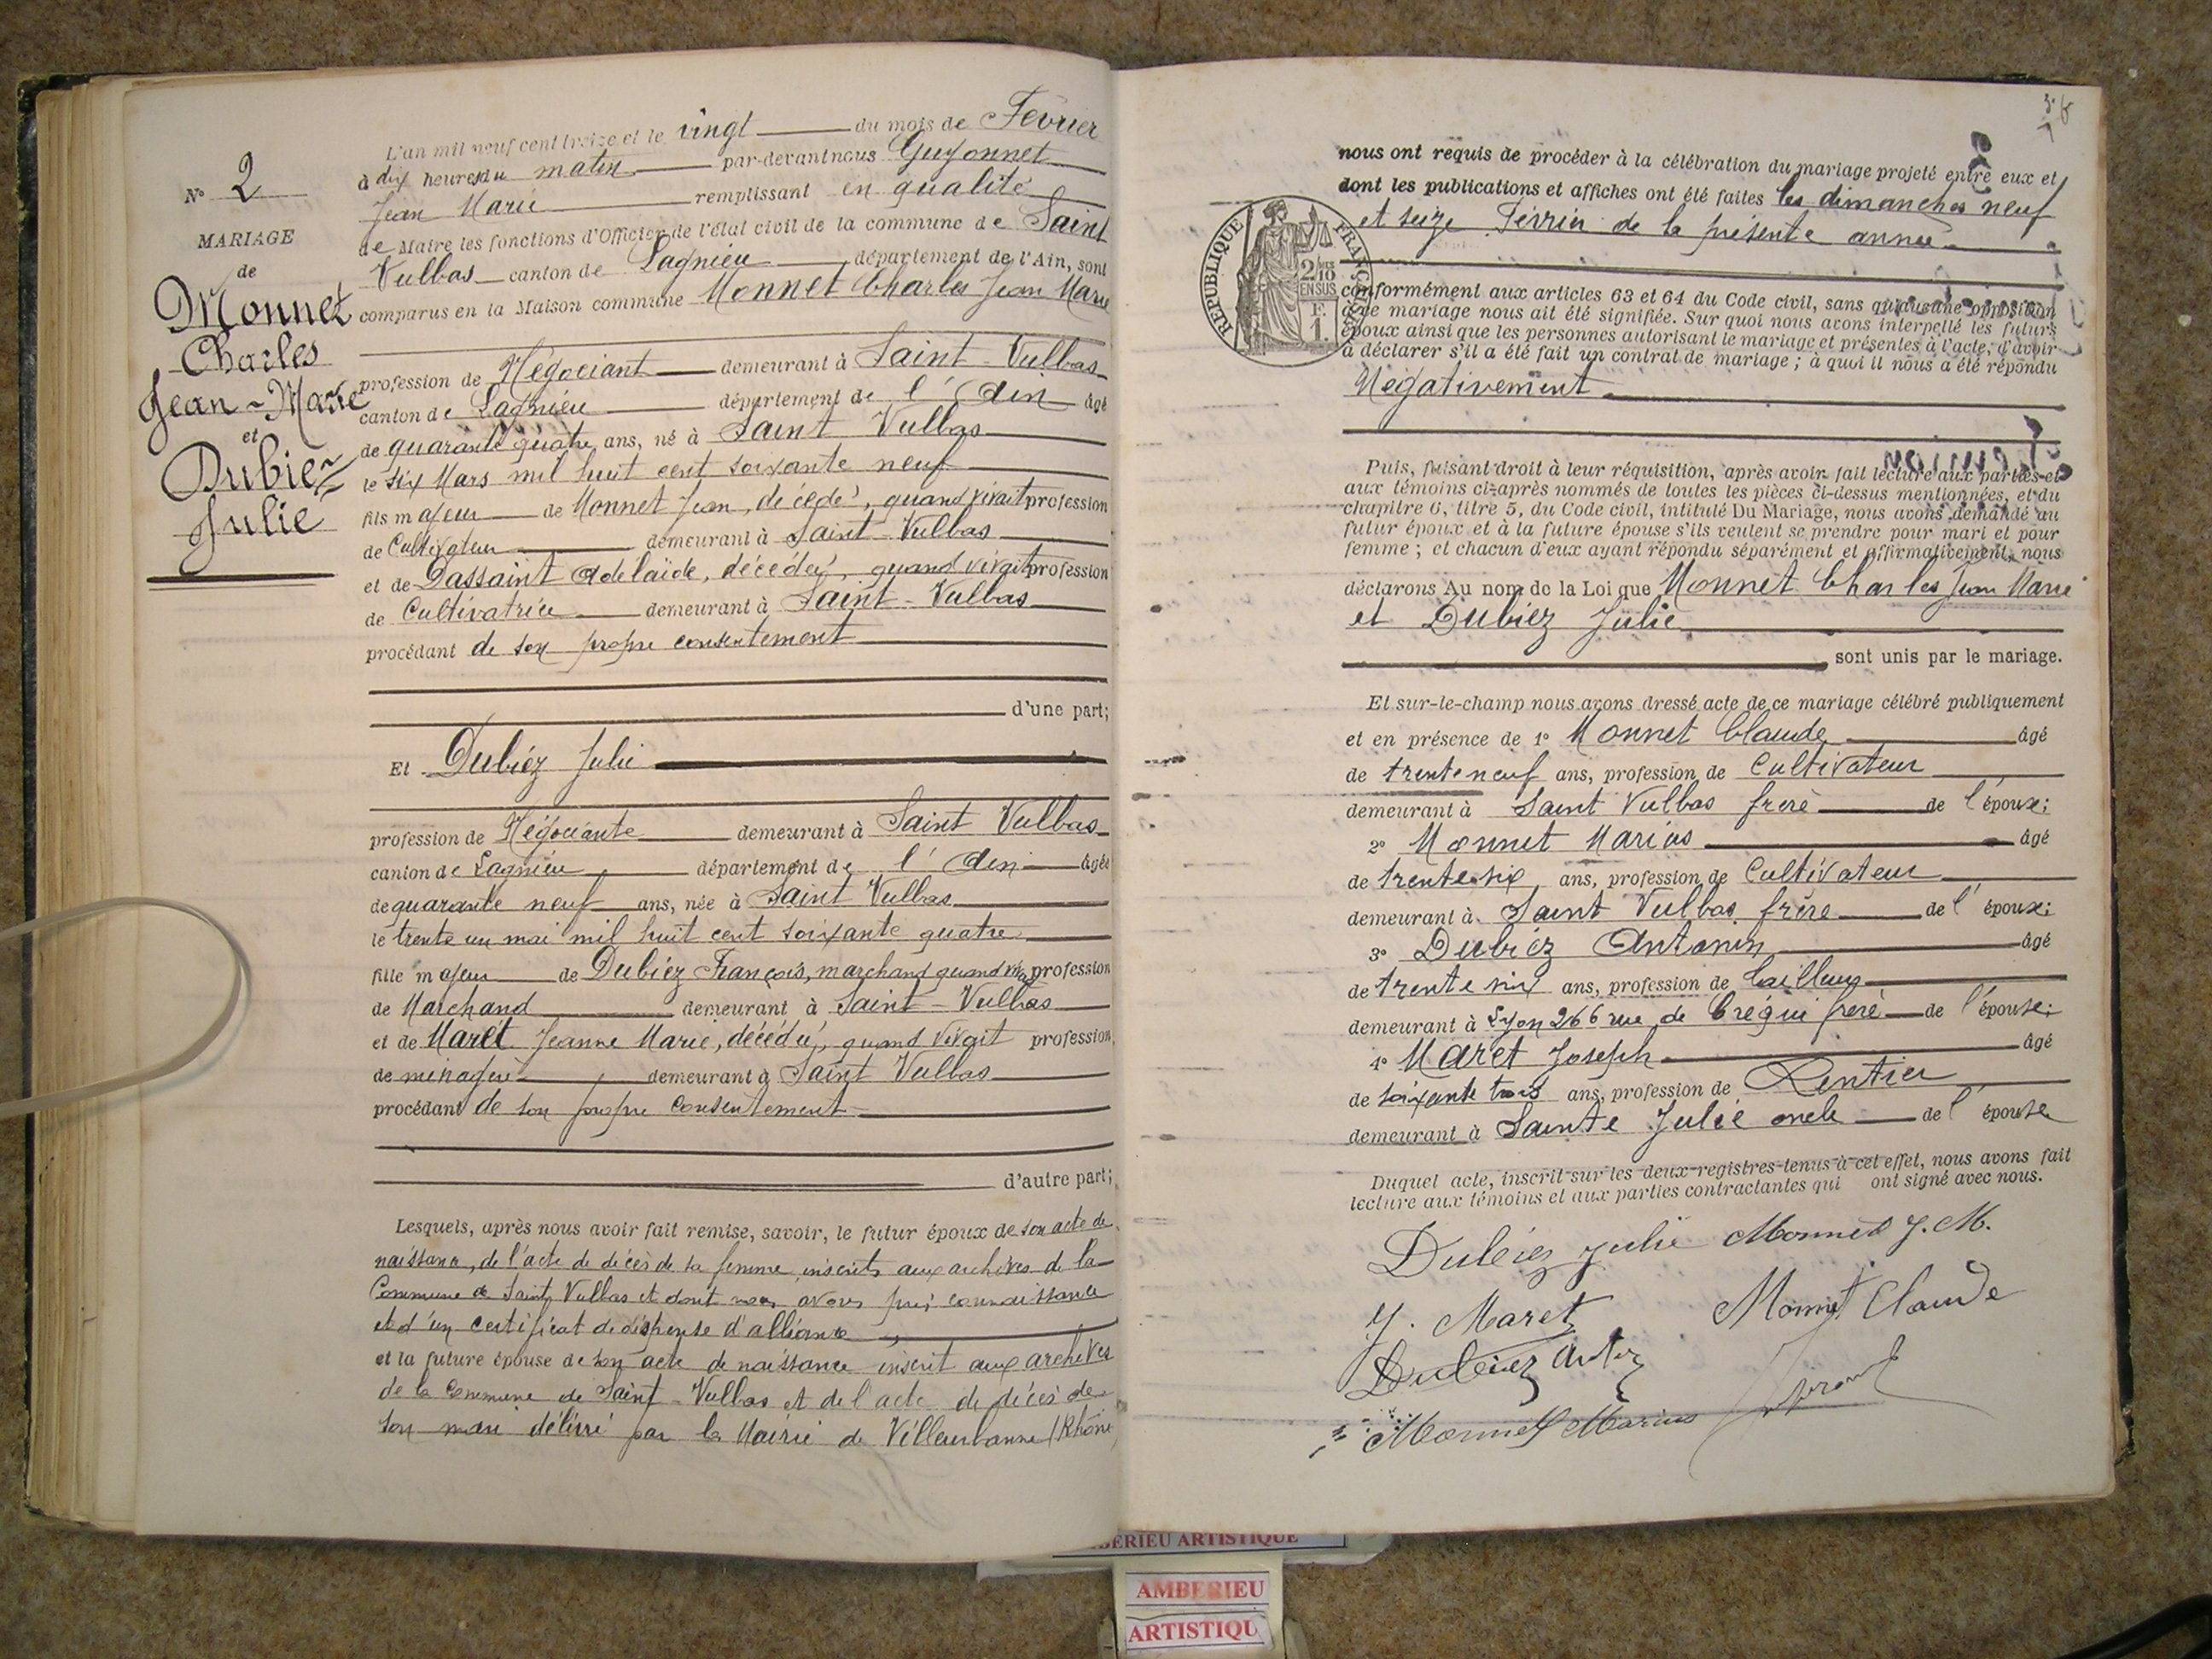 N° 2
MARIAGE
de
Monnet
Charles
Jean-Marie
et
Dubiez
Julie
L'an mil neuf cent treize et le vingt du mois de Février
à dix heures du matin par-devant nous Guyonnet
Jean Marie remplissant en qualité
de Maire les fonctions d'Officier de l'état civil de la commune de Saint
Vulbas canton de Lagnieu département de l'Ain, sont
comparus en la Maison commune Monnet Charles Jean Marie
profession de Négociant demeurant à Saint-Vulbas
canton de Lagnieu département de l'Ain âgé
de quarante quatre ans, né à Saint Vulbas
le six Mars mil huit cent soixante neuf
fils majeur de Monnet Jean, décédé, quand vivait profession
de Cultivateur demeurant à Saint-Vulbas
et de Dassaint Adelaïde, décédée, quand vivait profession
de Cultivatrice demeurant à Saint-Vulbas
procédant de son propre consentement
d'une part;
Et Dubiez Julie
profession de Négociante demeurant à Saint Vulbas
canton de Lagnieu département de l'Ain âgée
de quarante neuf ans, née à Saint Vulbas
le trente un mai mil huit cent soixante quatre
fille majeur de Dubiez François, marchand quand profession
de Marchand demeurant à Saint-Vulbas
et de Maret Jeanne Marie, décédée, quand vivait profession
de ménagère demeurant à Saint Vulbas
procédant de son propre consentement
d'autre part;
Lesquels, après nous avoir fait remise, savoir, le futur époux de son acte de
naissance, de l'acte de décès de sa femme inscrits aux archives de la
Commune de Saint Vulbas et dont nous avons pris connaissance
et d'un certificat de dispense d'alliance
et la future épouse de son acte de naissance inscrit aux archives
de la Commune de Saint-Vulbas et de l'acte de décès de
son mari délivré par la Mairie de Villeurbanne (Rhône
nous ont requis de procéder à la célébration du mariage projeté entre eux et
dont les publications et affiches ont été faites les dimanches neuf
et seize Février de la présente année
REPUBLIQUE FRANÇAISE
2/10
EN SUS
F.
1.
conformément aux articles 63 et 64 du Code civil, sans qu'aucune opposition
à ce mariage nous ait été signifiée. Sur quoi nous avons interpellé les futurs
époux ainsi que les personnes autorisant le mariage et présentes à l'acte, d'avoir
à déclarer s'il a été fait un contrat de mariage ; à quoi il nous a été répondu
Négativement
Puis, faisant droit à leur réquisition, après avoir fait lecture aux parties et
aux témoins ci-après nommés de toutes les pièces ci-dessus mentionnées, et du
chapitre 6, titre 5, du Code civil, intitulé Du Mariage, nous avons demandé au
futur époux et à la future épouse s'ils veulent se prendre pour mari et pour
femme ; et chacun d'eux ayant répondu séparément et affirmativement, nous
déclarons Au nom de la Loi que Monnet Charles Jean Marie
et Dubiez Julie
sont unis par le mariage.
Et sur-le-champ nous avons dressé acte de ce mariage célébré publiquement
et en présence de 1° Monnet Claude âgé
de trente neuf ans, profession de Cultivateur
demeurant à Saint Vulbas frère de l'époux;
2° Monnet Marius âgé
de trente six ans, profession de Cultivateur
demeurant à Saint Vulbas frère de l'époux;
3° Dubiez Antonin âgé
de trente six ans, profession de Tailleur
demeurant à Lyon 266 rue de Créqui frère de l'épouse;
4° Maret Joseph âgé
de soixante trois ans, profession de Rentier
demeurant à Sainte Julie oncle de l'épouse
Duquel acte, inscrit sur les deux registres tenus à cet effet, nous avons fait
lecture aux témoins et aux parties contractantes qui ont signé avec nous.
Dubiez Julie Monnet J. M.
J. Maret Monnet Claude
Dubiez Antin
Monnet Marius
AMBERIEU ARTISTIQUE
AMBERIEU
ARTISTIQU